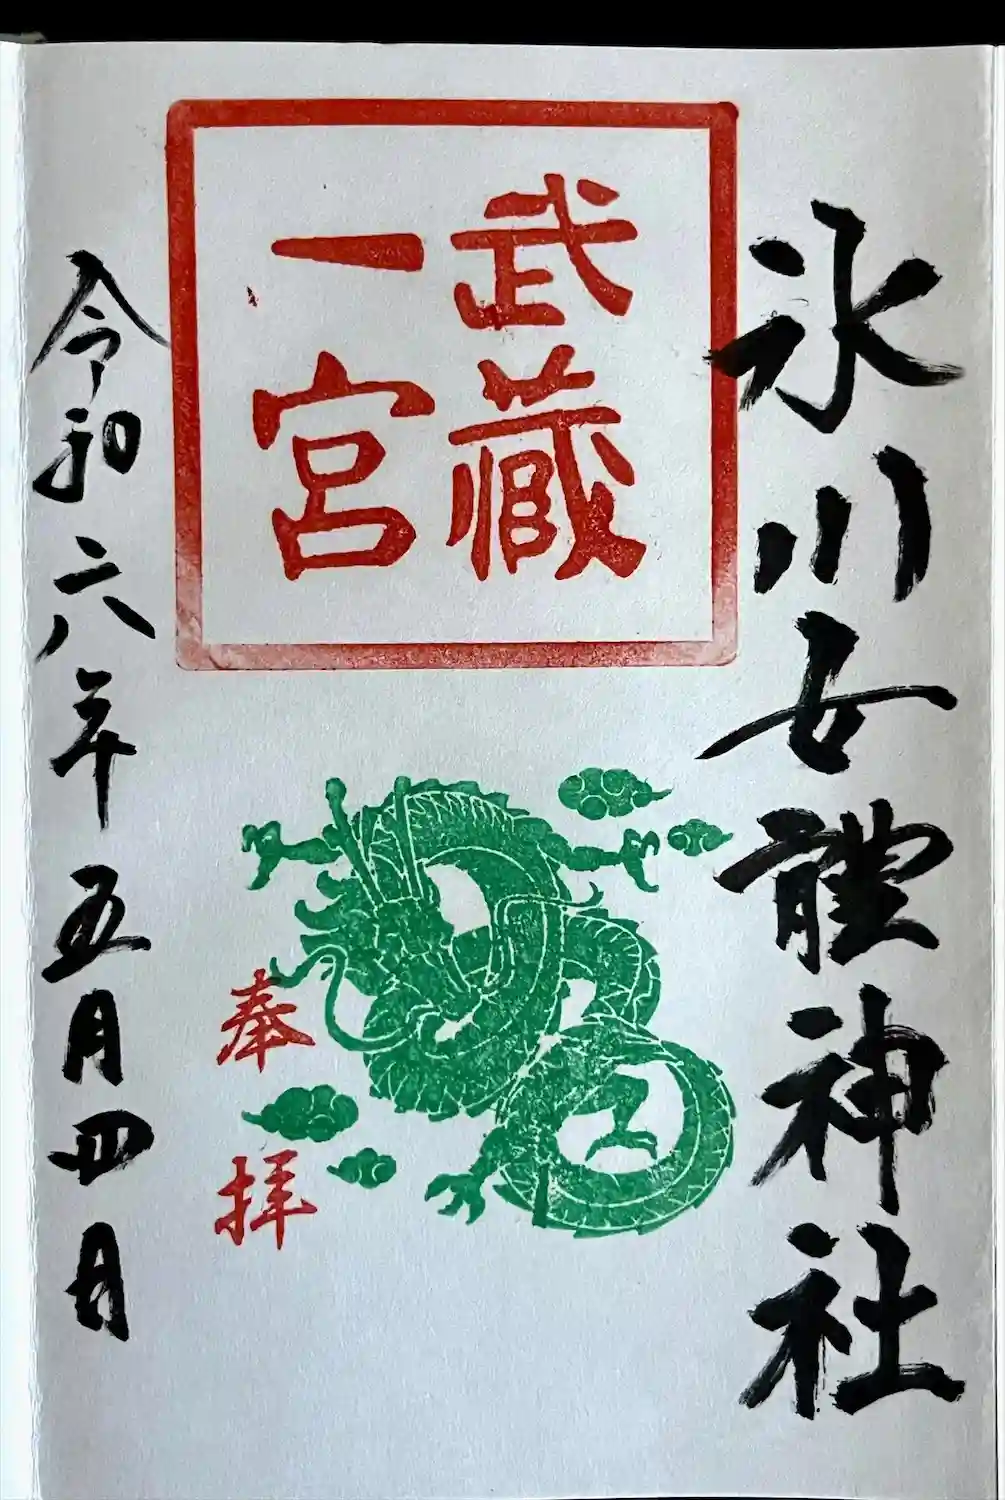 氷川女體神社
武藏
一宮
奉拝
令和六年五月四日